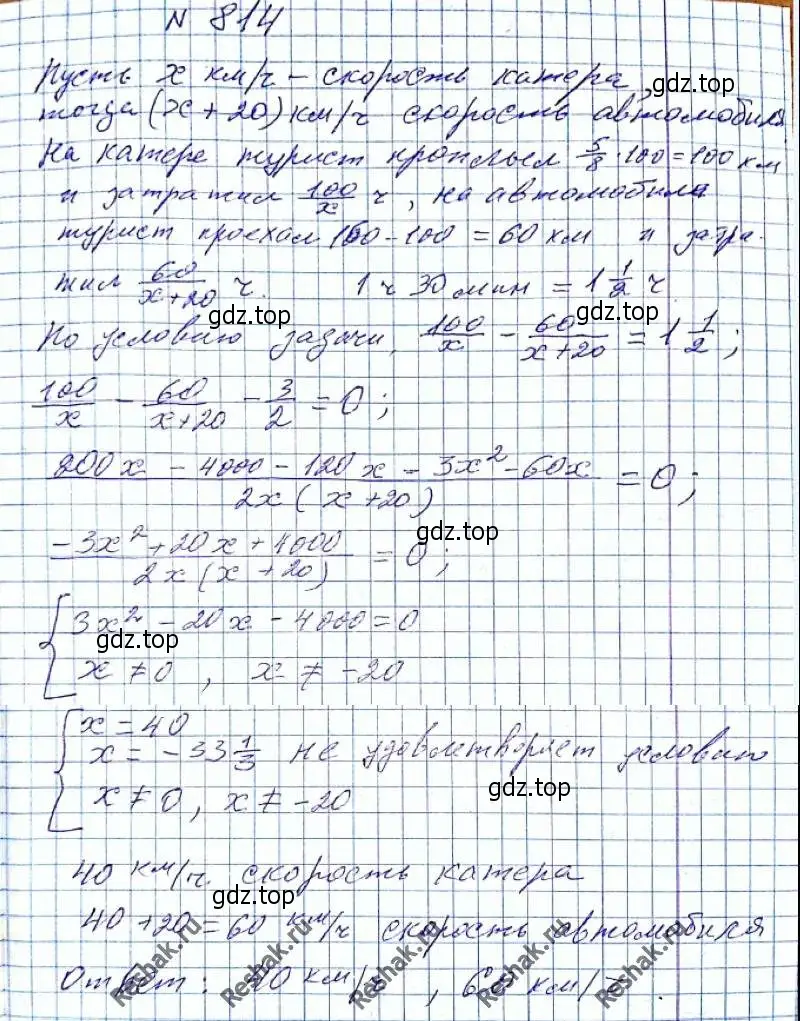 № 814
Пусть x км/ч – скорость катера,
gdz.top
тогда (x + 20) км/ч скорость автомобиля
На катере турист проплыл 5/8 · 100 = 100 км
и затратил 100/x ч, на автомобиле
турист проехал 160 - 100 = 60 км и затра-
тил 60/x+20 ч. 1 ч 30 мин = 1 1/2 ч
gdz.top
По условию задачи, 100/x - 60/x+20 = 1 1/2;
gdz.top
100/x - 60/x+20 - 3/2 = 0;
200x - 4000 - 120x - 3x² - 60x / 2x(x+20) = 0;
gdz.top
-3x² + 20x + 4000 / 2x(x+20) = 0;
{ 3x² - 20x - 4000 = 0
gdz.top
x ≠ 0, x ≠ -20
{ x = 40
gdz.top
x = -33 1/3 не удовлетворяет условию
x ≠ 0, x ≠ -20
gdz.top
40 км/ч скорость катера
gdz.top
40 + 20 = 60 км/ч скорость автомобиля
Ответ: 40 км/ч, 60 км/ч.
Reshak.ru
Reshak.ru
Reshak.ru
Reshak.ru